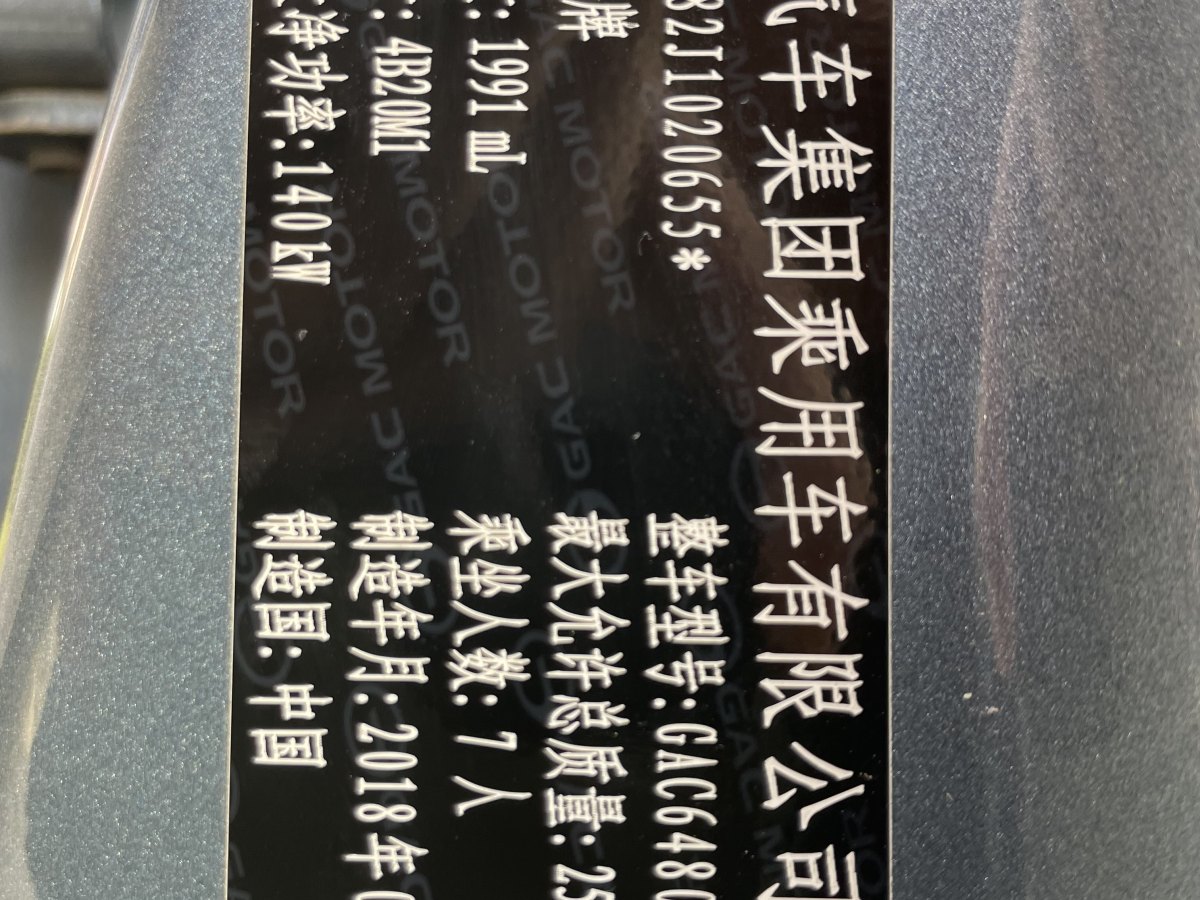 汽车集团乘用车有限公司
82J1020655* 整车型号:GAC648
牌 最大允许总质量:25
: 1991 mL 乘坐人数: 7 人
: 4B20M1 制造年月:2018年
净功率:140kW 制造国: 中国